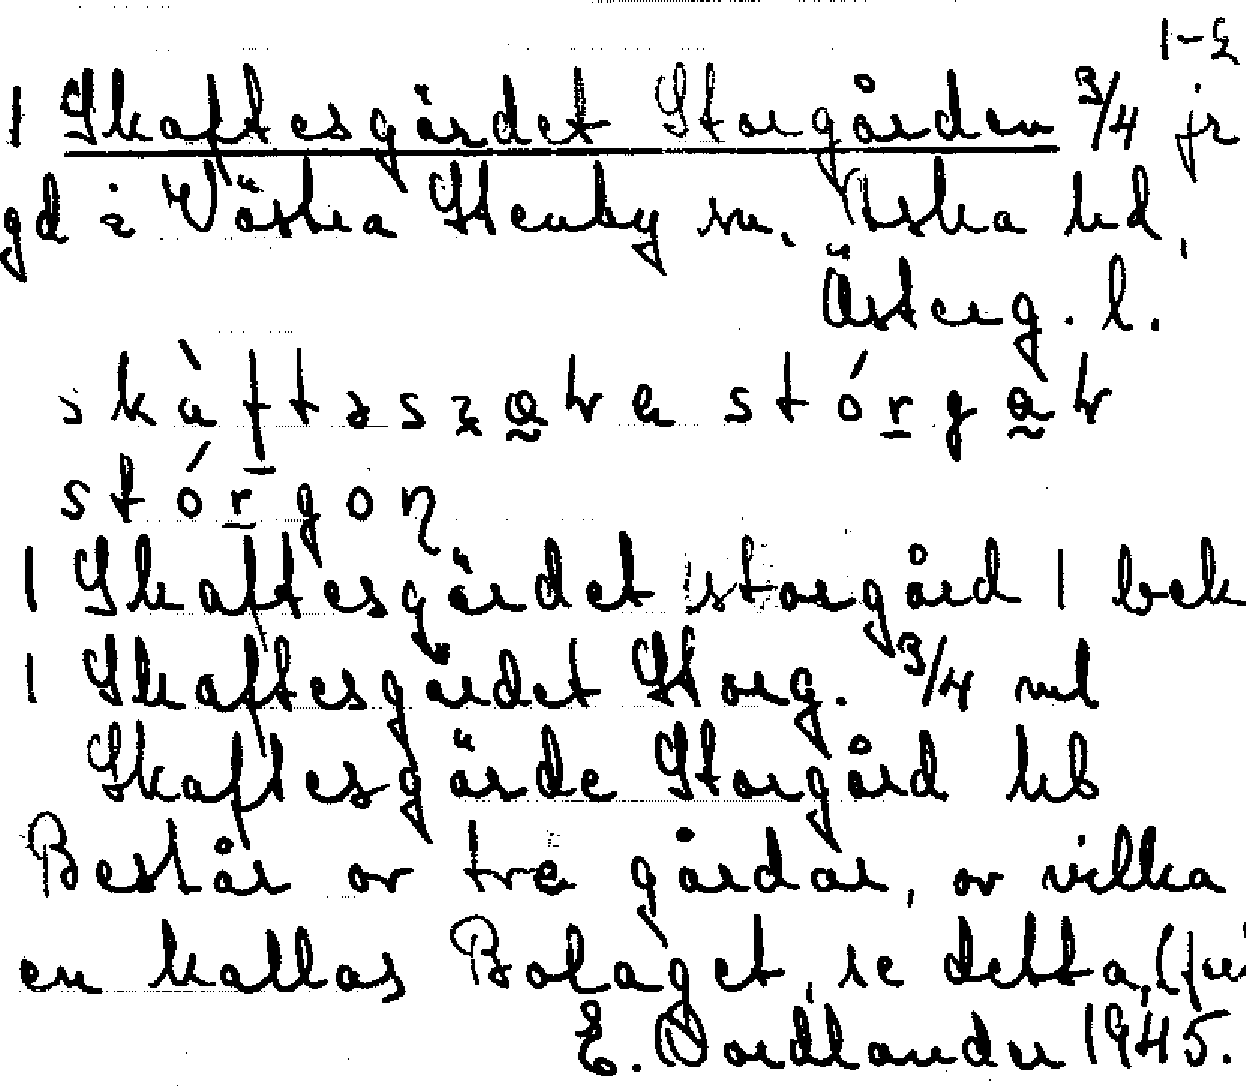 1-2
1 Skaftesgärdet Storgården 3/4 jr
gd i Västra Stenby sn. Aska hd,
Österg. l.
skàftəsʒærɐ stórgɑr
stórgon
1 Skaftesgärdet storgård 1 bek
1 Skaftesgärdet Storg. 3/4 ml
Skaftesgärde Storgård kb
Består av tre gårdar, av vilka
en kallas Bolaget, se detta,
E. Nordlander 1945.